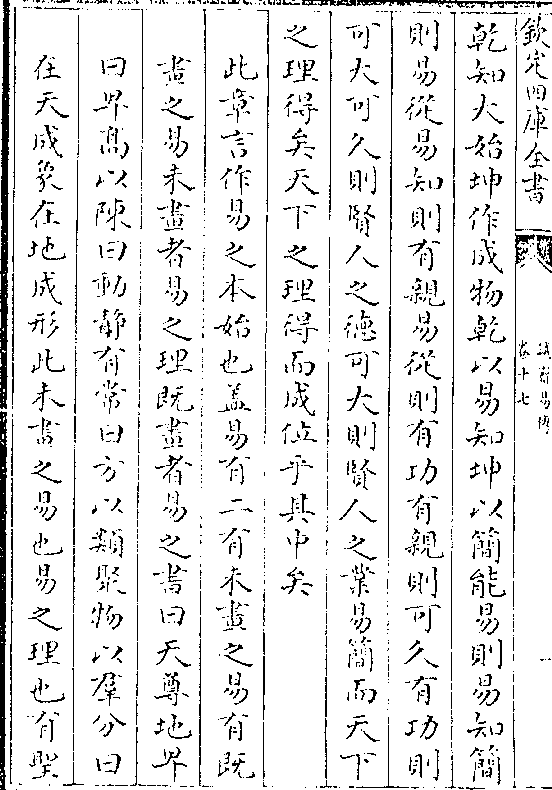 欽定四庫全書
誠齋易傳
卷十七
乾知大始坤作成物乾以易知坤以簡能易則易知簡
則易從易知則有親易從則有功有親則可久有功則
可大可久則賢人之德可大則賢人之業易簡而天下
之理得矣天下之理得而成位乎其中矣
此章言作易之本始也蓋易有二有未畫之易有既
畫之易未畫者易之理既畫者易之書曰天尊地卑
曰卑高以陳曰動靜有常曰方以類聚物以羣分曰
在天成象在地成形此未畫之易也易之理也有聖